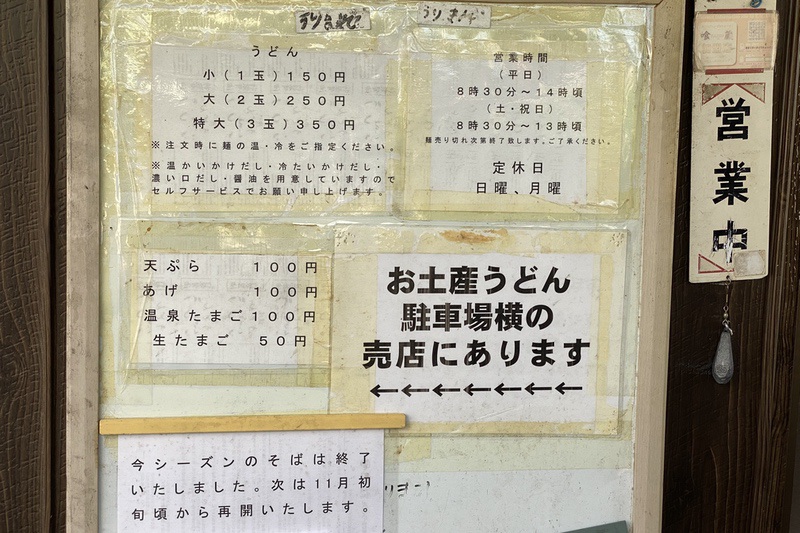 うどん
小(1玉)150円
大(2玉)250円
特大(3玉)350円
※注文時に麺の温・冷をご指定ください。
※温かいかけだし・冷たいかけだし・
濃い口だし・醤油を用意していますので
セルフサービスでお願い申し上げます。
営業時間
(平日)
8時30分～14時頃
(土・祝日)
8時30分～13時頃
麺売り切れ次第終了致します。ご了承ください。
定休日
日曜、月曜
天ぷら 100円
あげ 100円
温泉たまご100円
生たまご 50円
お土産うどん
駐車場横の
売店にあります
←←←←←←←
今シーズンのそばは終了
いたしました。次は11月初
旬頃から再開いたします。
営業中